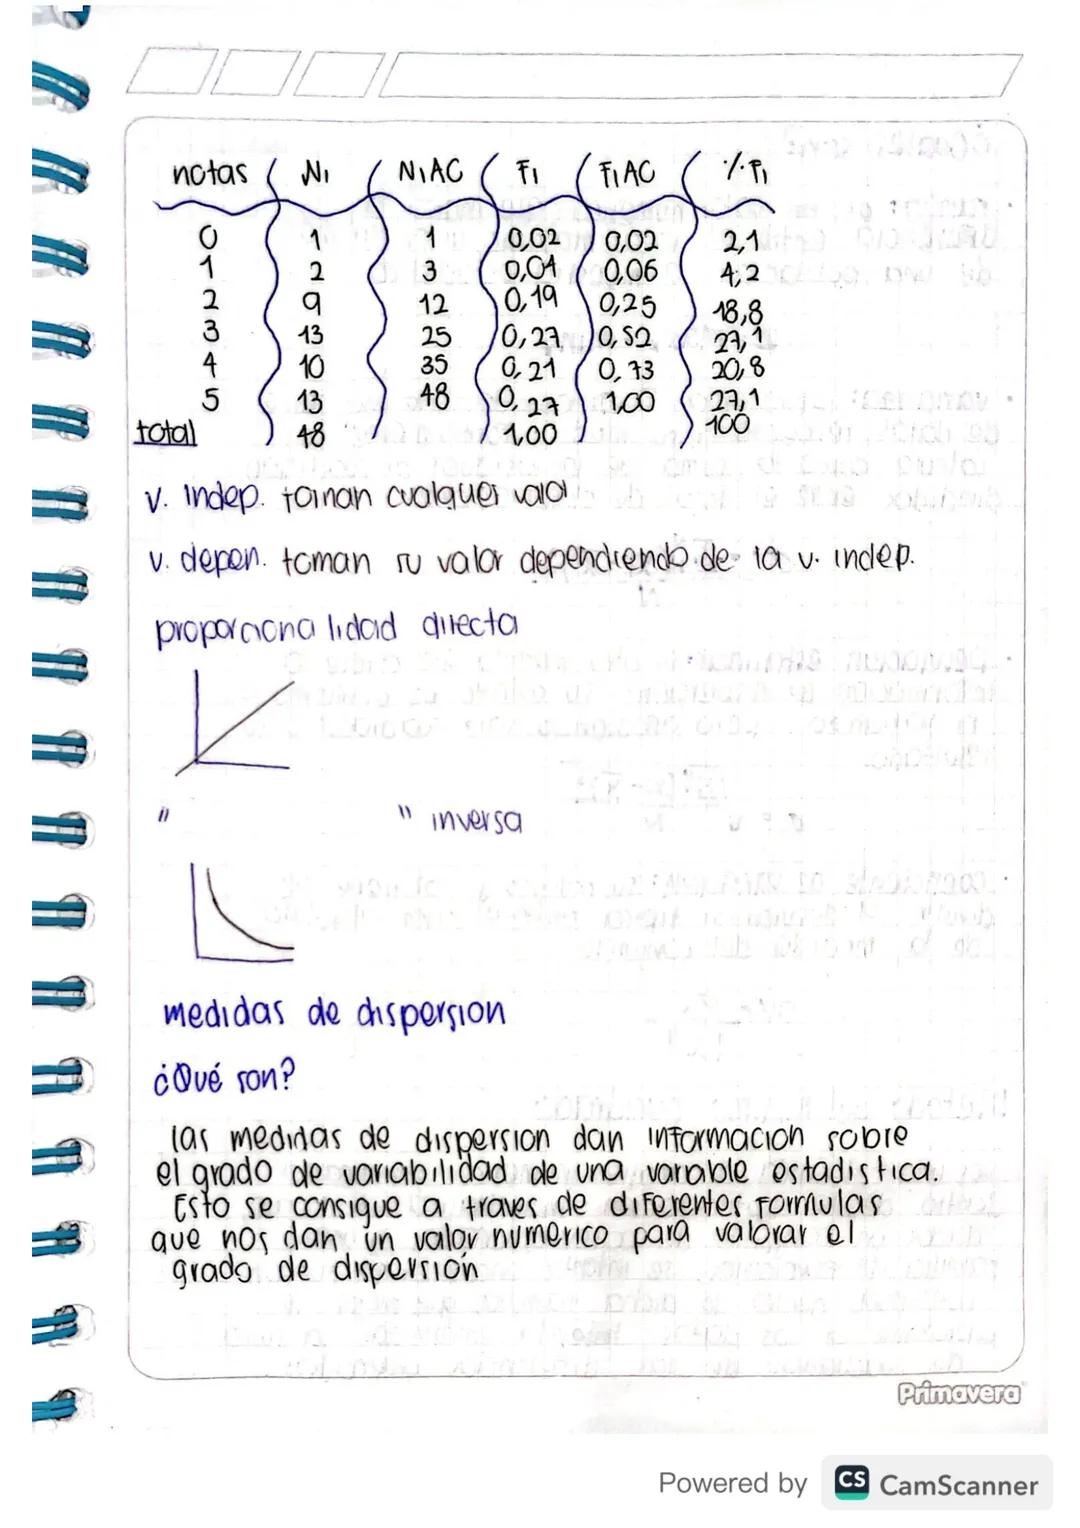 notas Ni NiAC Fi FiAC %Fi
0 1 1 0,02 0,02 2,1
1 2 3 0,04 0,06 4,2
2 9 12 0,19 0,25 18,8
3 13 25 0,27 0,52 27,1
4 10 35 0,21 0,73 20,8
5 13 48 0,27 1,00 27,1
total 48 1,00 100
v. indep. toman cualquier valor
v. depen. toman su valor dependiendo de la v. indep.
proporcionalidad directa
" " inversa
medidas de dispersion
¿Qué son?
las medidas de dispersion dan informacion sobre
el grado de variabilidad de una variable estadistica.
Esto se consigue a traves de diferentes formulas
que nos dan un valor numerico para valorar el
grado de dispersión
Primavera
Powered by CS CamScanner